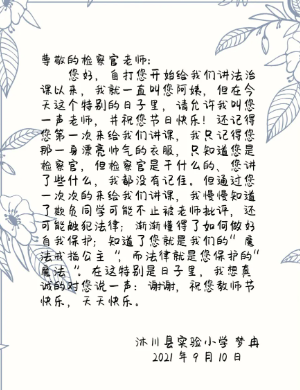 尊敬的检察官老师：
您好，自打您开始给我们讲法治
课以来，我就一直叫您阿姨，但在今
天这个特别的日子里，请允许我叫您
一声老师，并祝您节日快乐！还记得
您第一次来给我们讲课，我只记得您
那一身漂亮帅气的衣服，只知道您是
检察官，但检察官是干什么的、您讲
了些什么，我都没有记住。但通过您
一次次的来给我们讲课，我慢慢知道
了欺负同学可能不止被老师批评，还
可能触犯法律；渐渐懂得了如何做好
自我保护；知道了您就是我们的“魔
法戒指公主”，而法律就是您保护的“
魔法”。在这特别是日子里，我想真
诚的对您说一声：谢谢，祝您教师节
快乐，天天快乐。
沐川县实验小学 梦冉
2021年9月10日